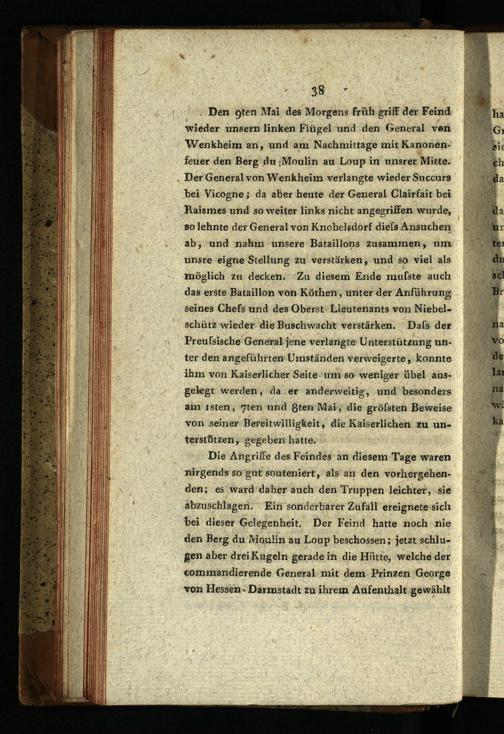 38
Den 9ten Mai des Morgens früh griff der Feind
wieder unsern linken Flügel und den General von
Wenkheim an, und am Nachmittage mit Kanonen-
feuer den Berg du Moulin au Loup in unsrer Mitte.
Der General von Wenkheim verlangte wieder Succurs
bei Vicogne; da aber heute der General Clairfait bei
Raismes und so weiter links nicht angegriffen wurde,
so lehnte der General von Knobelsdorf diefs Ansuchen
ab, und nahm unsere Bataillons zusammen, um
unsre eigne Stellung zu verstärken, und so viel als
möglich zu decken. Zu diesem Ende mufste auch
das erste Bataillon von Köthen, unter der Anführung
seines Chefs und des Oberst Lieutenants von Niebel-
schütz wieder die Buschwacht verstärken. Dafs der
Preufsische General jene verlangte Unterstützung un-
ter den angeführten Umständen verweigerte, konnte
ihm von Kaiserlicher Seite um so weniger übel aus-
gelegt werden, da er anderweitig, und besonders
am 1sten, 7ten und 8ten Mai, die gröfsten Beweise
von seiner Bereitwilligkeit, die Kaiserlichen zu un-
terstützen, gegeben hatte.
Die Angriffe des Feindes an diesem Tage waren
nirgends so gut souteniert, als an den vorhergehen-
den; es ward daher auch den Truppen leichter, sie
abzuschlagen. Ein sonderbarer Zufall ereignete sich
bei dieser Gelegenheit. Der Feind hatte noch nie
den Berg du Moulin au Loup beschossen; jetzt schlu-
gen aber drei Kugeln gerade in die Hütte, welche der
commandierende General mit dem Prinzen George
von Hessen-Darmstadt zu ihrem Aufenthalt gewählt